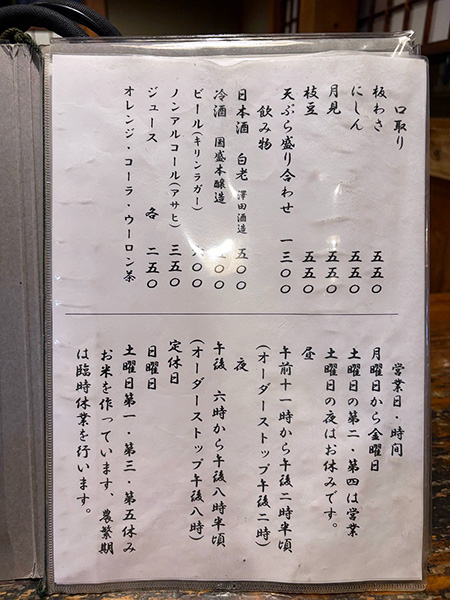 口取り
板わさ 五五〇
にしん 五五〇
月見 五五〇
枝豆 五五〇
天ぷら盛り合わせ 一三〇〇
飲み物
日本酒 白老 澤田酒造 五〇〇
冷酒 国盛本醸造
ビール(キリンラガー) 六〇〇
ノンアルコール(アサヒ) 三五〇
ジュース 各 二五〇
オレンジ・コーラ・ウーロン茶
営業日・時間
月曜日から金曜日
土曜日の第二・第四は営業
土曜日の夜はお休みです。
昼
午前十一時から午後二時半頃
(オーダーストップ午後二時)
夜
午後 六時から午後八時半頃
(オーダーストップ午後八時)
定休日
日曜日
土曜日第一・第三・第五休み
お米を作っています、農繁期
は臨時休業を行います。